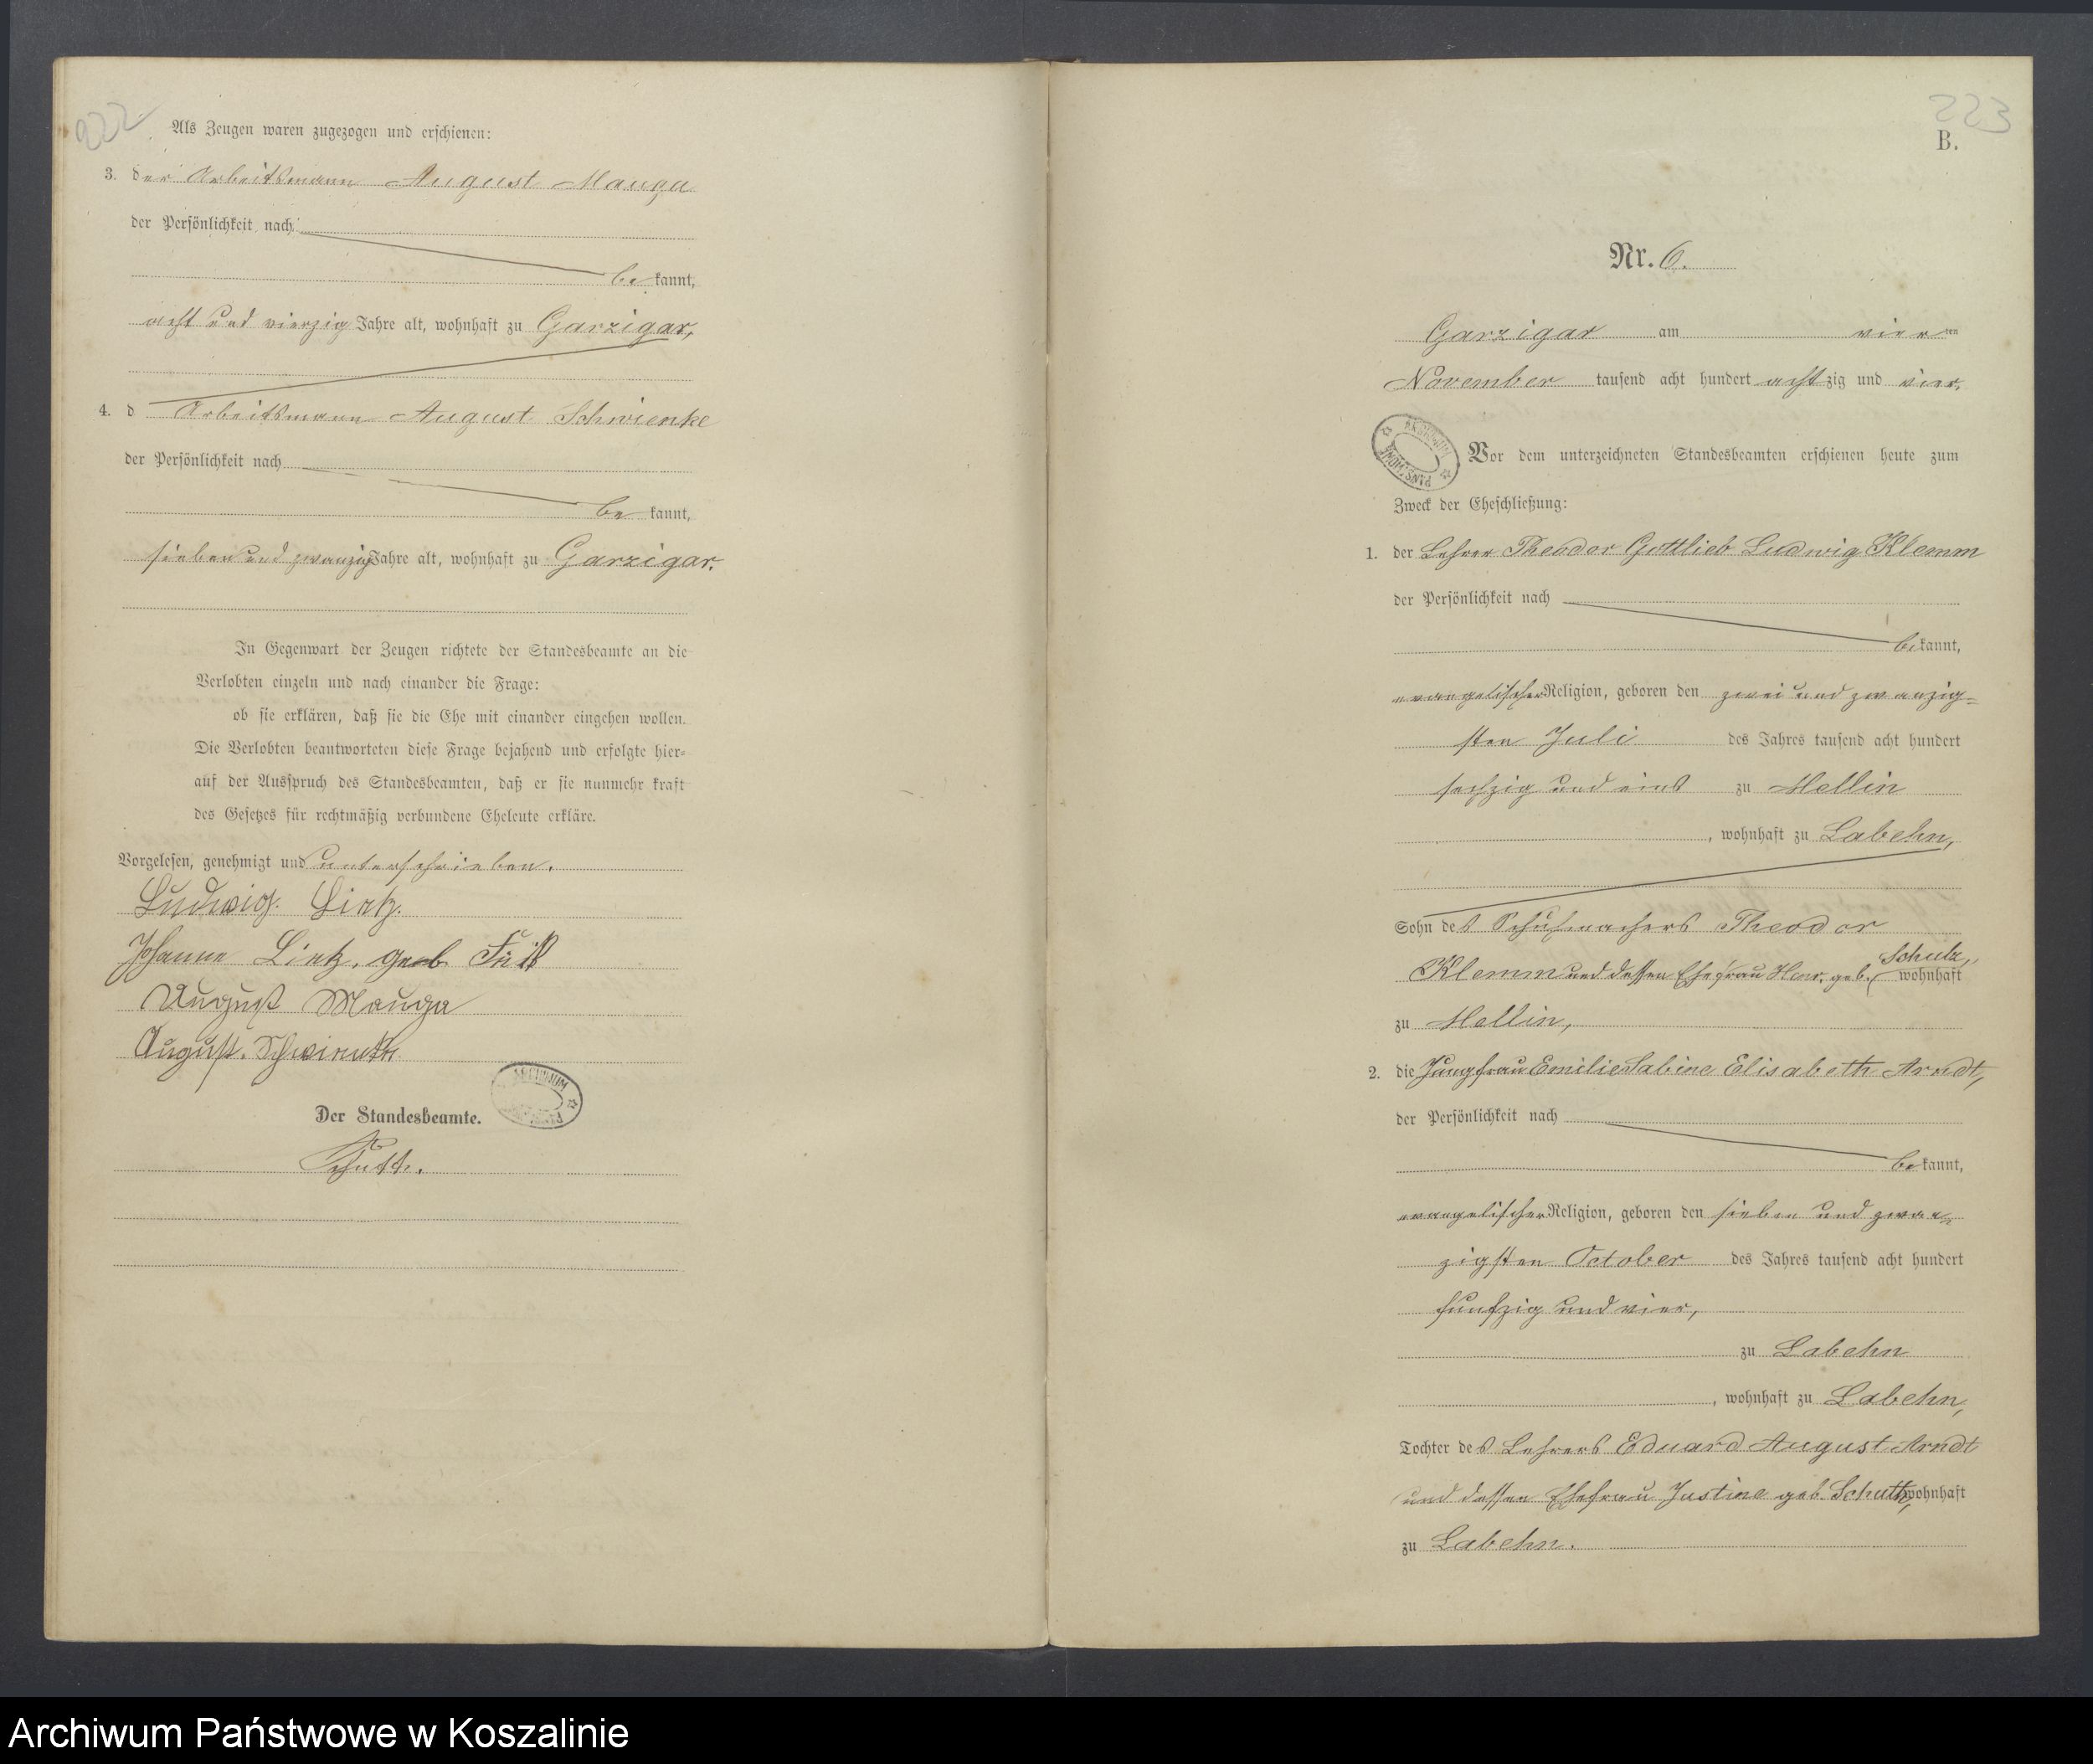 222
Als Zeugen waren zugezogen und erschienen:
3. der Arbeitsmann August Mauga
der Persönlichkeit nach
be kannt,
acht und vierzig Jahre alt, wohnhaft zu Garzigar,
4. d Arbeitsmann August Schwienke
der Persönlichkeit nach
be kannt,
sieben und zwanzig Jahre alt, wohnhaft zu Garzigar.
In Gegenwart der Zeugen richtete der Standesbeamte an die
Verlobten einzeln und nach einander die Frage:
ob sie erklären, daß sie die Ehe mit einander eingehen wollen.
Die Verlobten beantworteten diese Frage bejahend und erfolgte hier-
auf der Ausspruch des Standesbeamten, daß er sie nunmehr kraft
des Gesetzes für rechtmäßig verbundene Eheleute erkläre.
Vorgelesen, genehmigt und unterschrieben.
Ludwig Lietz.
Johanne Lietz. geb
August Mauga
August.
ARCHIWUM
Der Standesbeamte.
223
B.
Nr. 6.
Garzigar am vier ten
November tausend acht hundert acht zig und vier.
ARCHIWUM PAŃSTWOWE
Vor dem unterzeichneten Standesbeamten erschienen heute zum
Zweck der Eheschließung:
1. der Lehrer Theodor Gottlieb Ludwig Klemm
der Persönlichkeit nach
be kannt,
evangelischer Religion, geboren den zwei und zwanzig=
sten Juli des Jahres tausend acht hundert
sechzig und eins zu Mellin
, wohnhaft zu Labehn,
Sohn des Schuhmachers Theodor
Schulz,
Klemm und dessen Ehefrau geb. wohnhaft
zu Mellin,
2. die Jungfrau Emilie Sabine Elisabeth Arndt,
der Persönlichkeit nach
be kannt,
evangelischer Religion, geboren den sieben und zwan=
zigsten October des Jahres tausend acht hundert
fünfzig und vier,
zu Labehn
, wohnhaft zu Labehn,
Tochter des Lehrers Eduard August Arndt
und dessen Ehefrau Justine geb. Schutt, wohnhaft
zu Labehn.
Archiwum Państwowe w Koszalinie